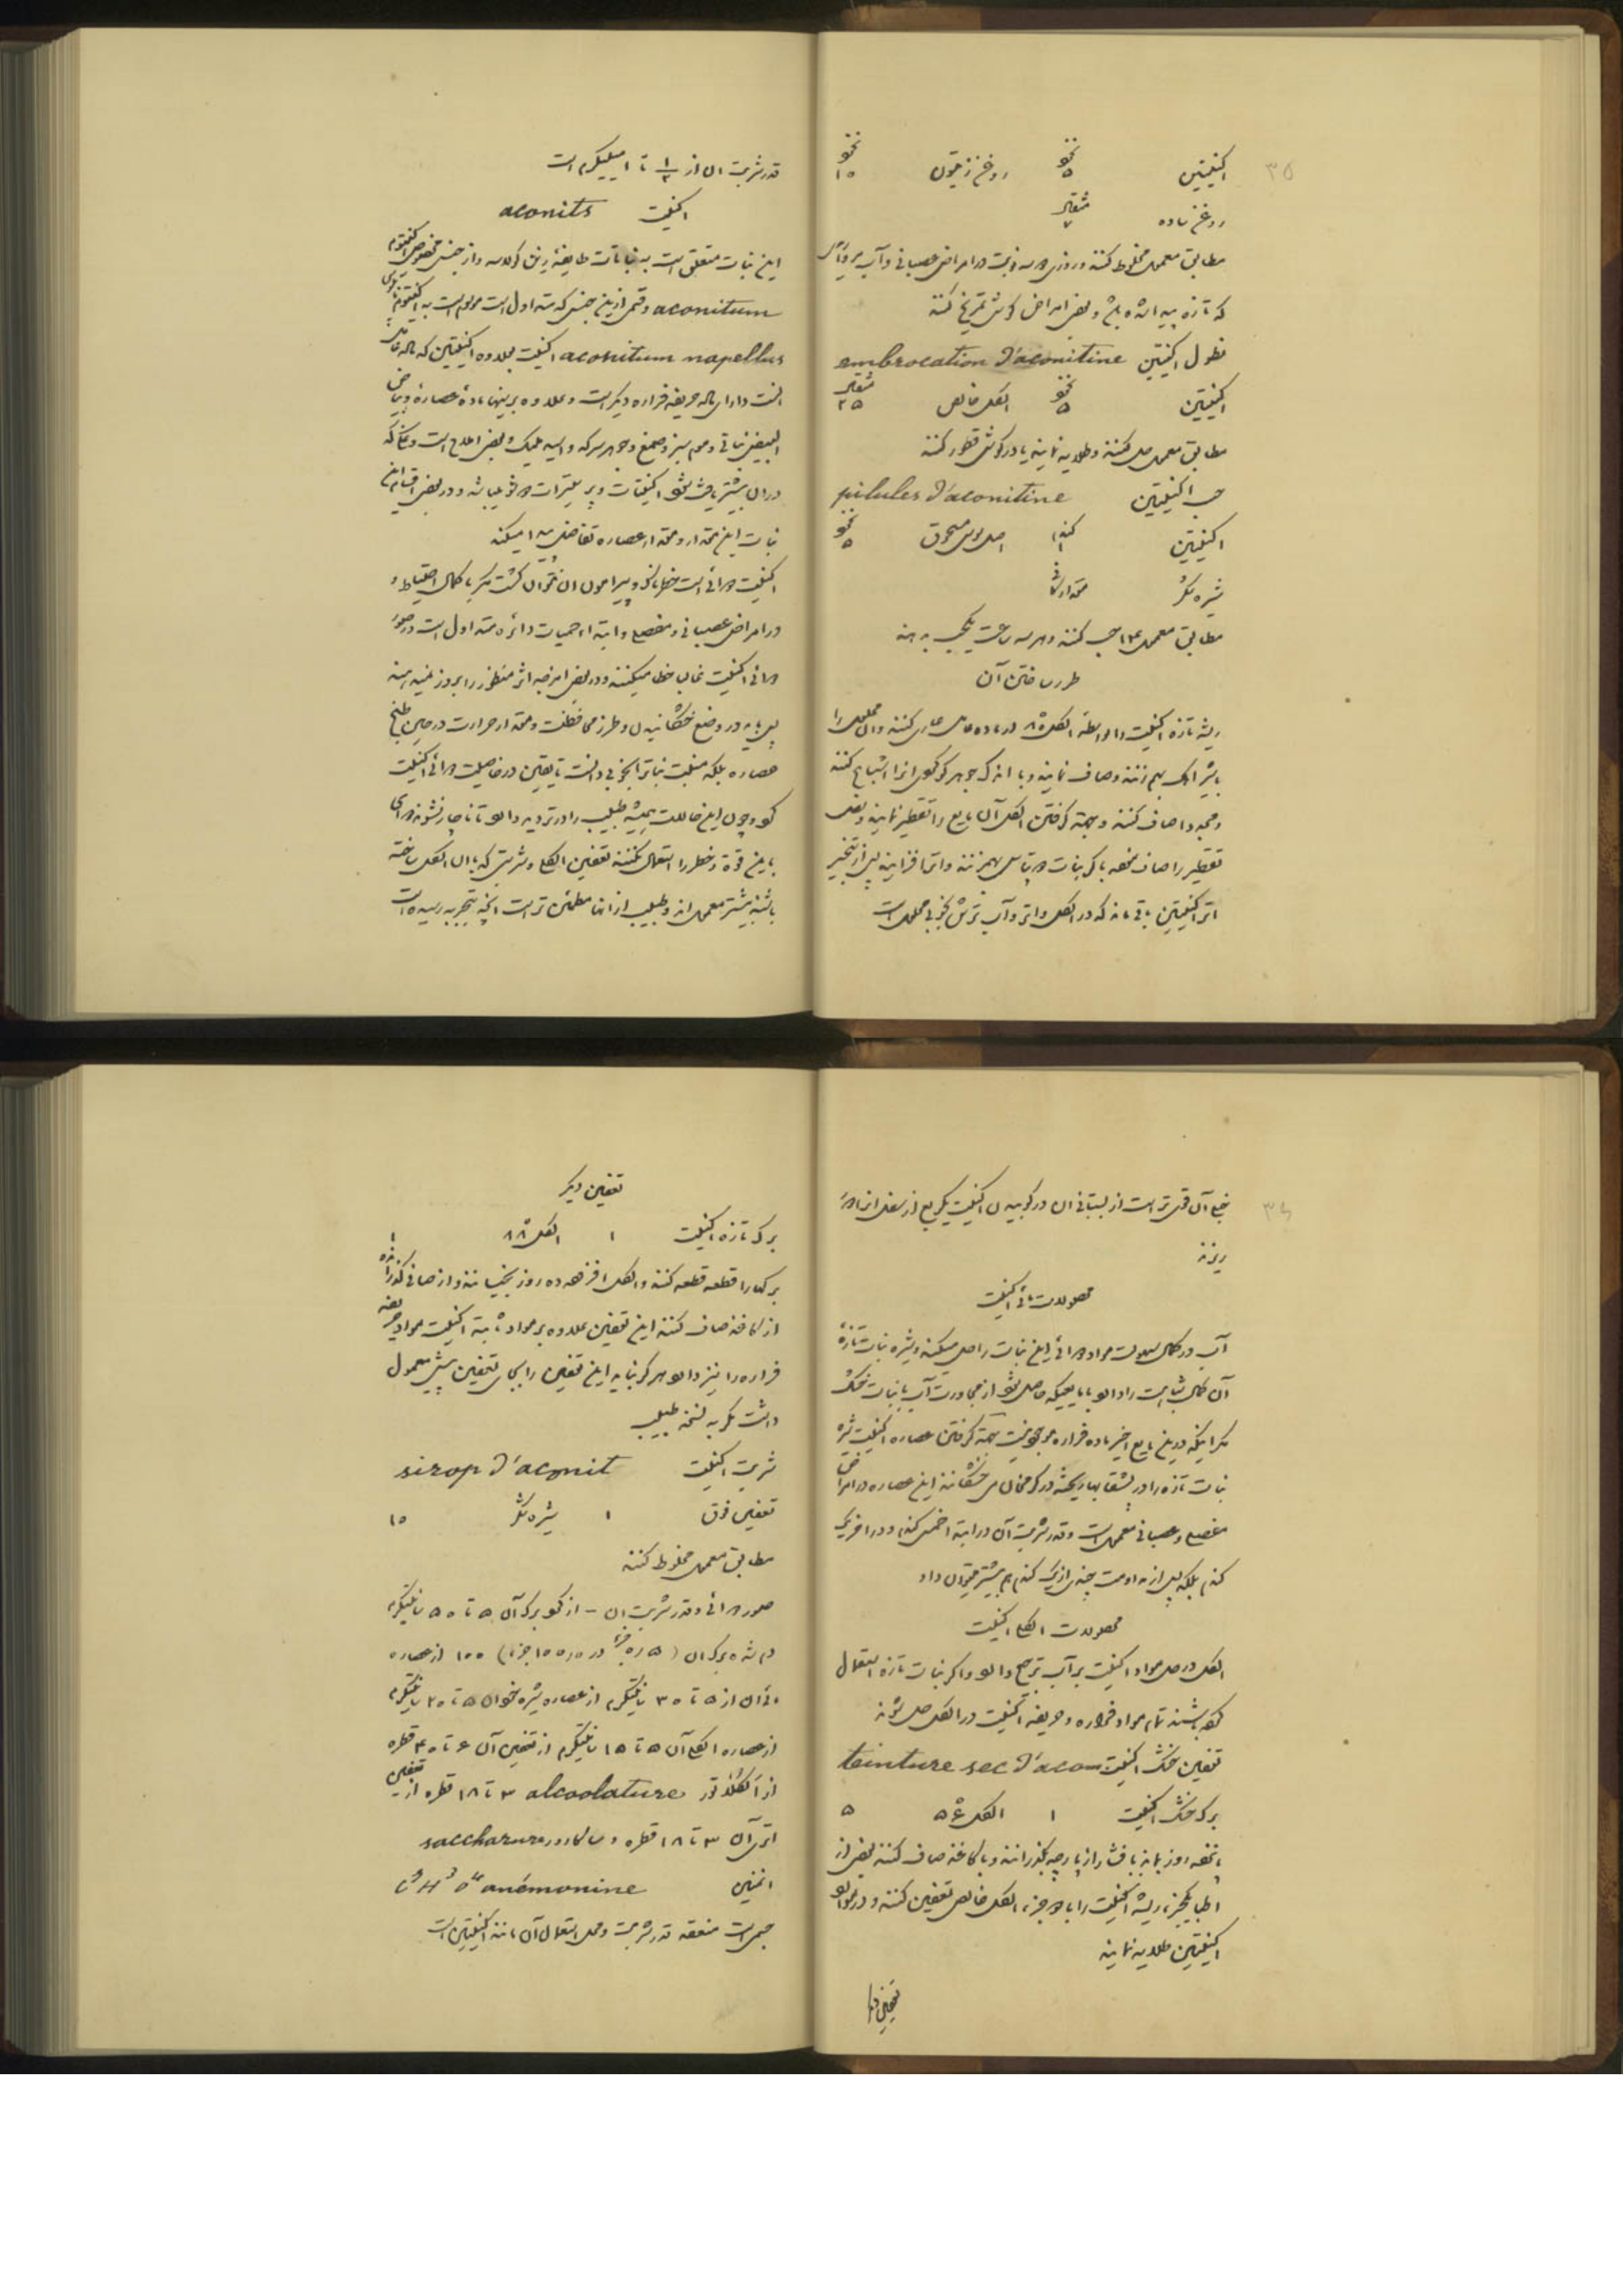 ۳۵
اکنیتین نخود ۵ روغن زیتون نخود ۱۰
روغن ساده مثقال ۷
مطابق معمول مخلوط کنند و روزی دو سه نوبت در امراض عصبانی و آب مروارید
که تازه پیدا شده باشد و بعض امراض گوش تمریخ کنند
نطول اکنیتین embrocation d'aconitine
اکنیتین نخود ۵ الکل خالص مثقال ۲۵
مطابق معمول حل کنند و طلا نمایند یا در گوش قطور کنند
حب اکنیتین pilules d'aconitine
اکنیتین گندم ۱ اصل سوس مسحوق نخود ۵
شیره شکر مقدار کافی
مطابق معمول حب کنند و هر سه ساعت یکحب بدهند
طرز ساختن آن
ریشه تازه اکنیت را بواسطه الکل ۸۵
با شیر آهک بهم زنند و صاف نمایند و با اندک جوهر گوگرد آنرا اشباع کنند
و مجدداً صاف کنند و بجهة گرفتن الکل آن مایع را تقطیر نمایند
تقطیر را صاف نموده با کربنات دو پتاس بهم زنند و اتر افزایند پس از تبخیر
اتر اکنیتین باقی ماند که در الکل و اتر و آب ترش بخوبی محلول است
قدر شربت آن از ۱/۲ تا ۱ میلیگرم است
اکنیت aconits
این نبات متعلق است به نباتات طایفه رنن کولاسه و از جنس مخصوص اکنیتوم
aconitum و قسمی از این جنس که سته اول است موسوم است به اکنیتوم ناپلوس
aconitum napellus اکنیت بعلاوه اکنیتین که ماده فاعله
است دارای ماده حریفه فراره دیگر است و علاوه بر اینها ماده عصاره و بیاض
البیض نباتی و موم سبز و صمغ و جوهر سرکه و اسید ملیک و بعض املاح است
در آن بیشتر یافت شود اکنیتات و سیترات دو شو میباشد و در بعض اقسام این
نبات این مقدار و مقدار عصاره تفاضل پیدا میکند
اکنیت دوائی است خطرناک و پیرامون آن نتوان گشت مگر با کمال احتیاط و
در امراض عصبانی و مفصل و ابتداء حمیات دائره سته اول است
دوائی اکنیت غالب خطا میکنند و در بعض امزجه اثر منظور را بروز نمیدهند
پس باید در وضع خشکانیدن و طرز محافظت و مقدار حرارت در حین طبخ
عصاره بلکه منبت نبات را بخوبی دانست تا یقین در خاصیت دوائی اکنیت
کرد و چون این حالات همیشه طبیب را در تردید دارد تا ناچار نشوند دوای
باین قوة و خطر را استعمال نکنند تعفین الکلی و شربتی که با آن الکل ساخته
باشند بیشتر معمولند و طبیب از آنها مطمئن تر است آنچه بتجربه رسیده است
۳۶
بیخ آن قوی تر است از بستانی آن در کوبیدن اکنیت یکربع از ثفل آنرا دور
ریزند
محصولات مائی اکنیت
آب در کمال سهولت مواد دوائی این نبات را حل میکند و شیره نبات تازه
آن کمال شباهت را دارد با مایعیکه حاصل شود از مجاورت آب با نبات خشک
مگر اینکه در این مایع اخیر ماده فراره موجود نیست بجهة گرفتن عصاره اکنیت شیره
نبات تازه را در بشقابها ریخته در گرمخانه میخشکانند این عصاره در امراض
مفصل و عصبانی معمول است و قدر شربت آن در ابتدا خمس گندم و در آخر یک
گندم بلکه پس از مداومت چندی از یک گندم هم بیشتر میتوان داد
محصولات الکلی اکنیت
الکل در حل مواد اکنیت بر آب ترجیح دارد و اگر نبات تازه استعمال
کرده باشند تمام مواد فراره و حریفه اکنیت در الکل حل شوند
تعفین خشک اکنیت teinture sec d'acon
برک خشک اکنیت ۱ الکل ۵۶ ۵
پانزده روز بماند با فشار از پارچه بگذرانند و با کاغذ صاف کنند بعض از
اطبا یکجزء ریشه اکنیت را با دو جزء الکل خالص تعفین کنند و در موارد
اکنیتین طلا نمایند
تعفین دیگر
تعفین دیگر
برک تازه اکنیت ۱ الکل ۸۸ ۱
برکها را قطعه قطعه کنند و الکل افزوده ده روز بخیسانند و از صافی گذرانده
از کاغذ صاف کنند این تعفین علاوه بر مواد ثابته اکنیت مواد حریفه
فراره را نیز دارد هرگز نباید این تعفین را بجای تعفین پیش معمول
داشت مگر به نسخه طبیب
شربت اکنیت sirop d'aconit
تعفین فوق ۱ شیره شکر ۱۵
مطابق معمول مخلوط کنند
صور دوائی و قدر شربت آن - از گرد برک آن ۵ تا ۵۰ سانتیگرم
دم شده برک آن (۵ جزء در ۱۰۰۰ جزء) ۱۰۰ از عصاره
مائی آن از ۵ تا ۳۰ سانتیگرم از عصاره شیره خوان ۵ تا ۲۰ سانتیگرم
از عصاره الکلی آن ۵ تا ۱۵ سانتیگرم از تعفین آن ۶ تا ۴۰ قطره
از الکلاتور alcoolature ۳ تا ۱۸ قطره از تعفین
اتری آن ۳ تا ۱۸ قطره و ساکارور saccharure
انمنین anémonine
جسمی است منعقد قدر شربت و محل استعمال آن مانند اکنیتین است